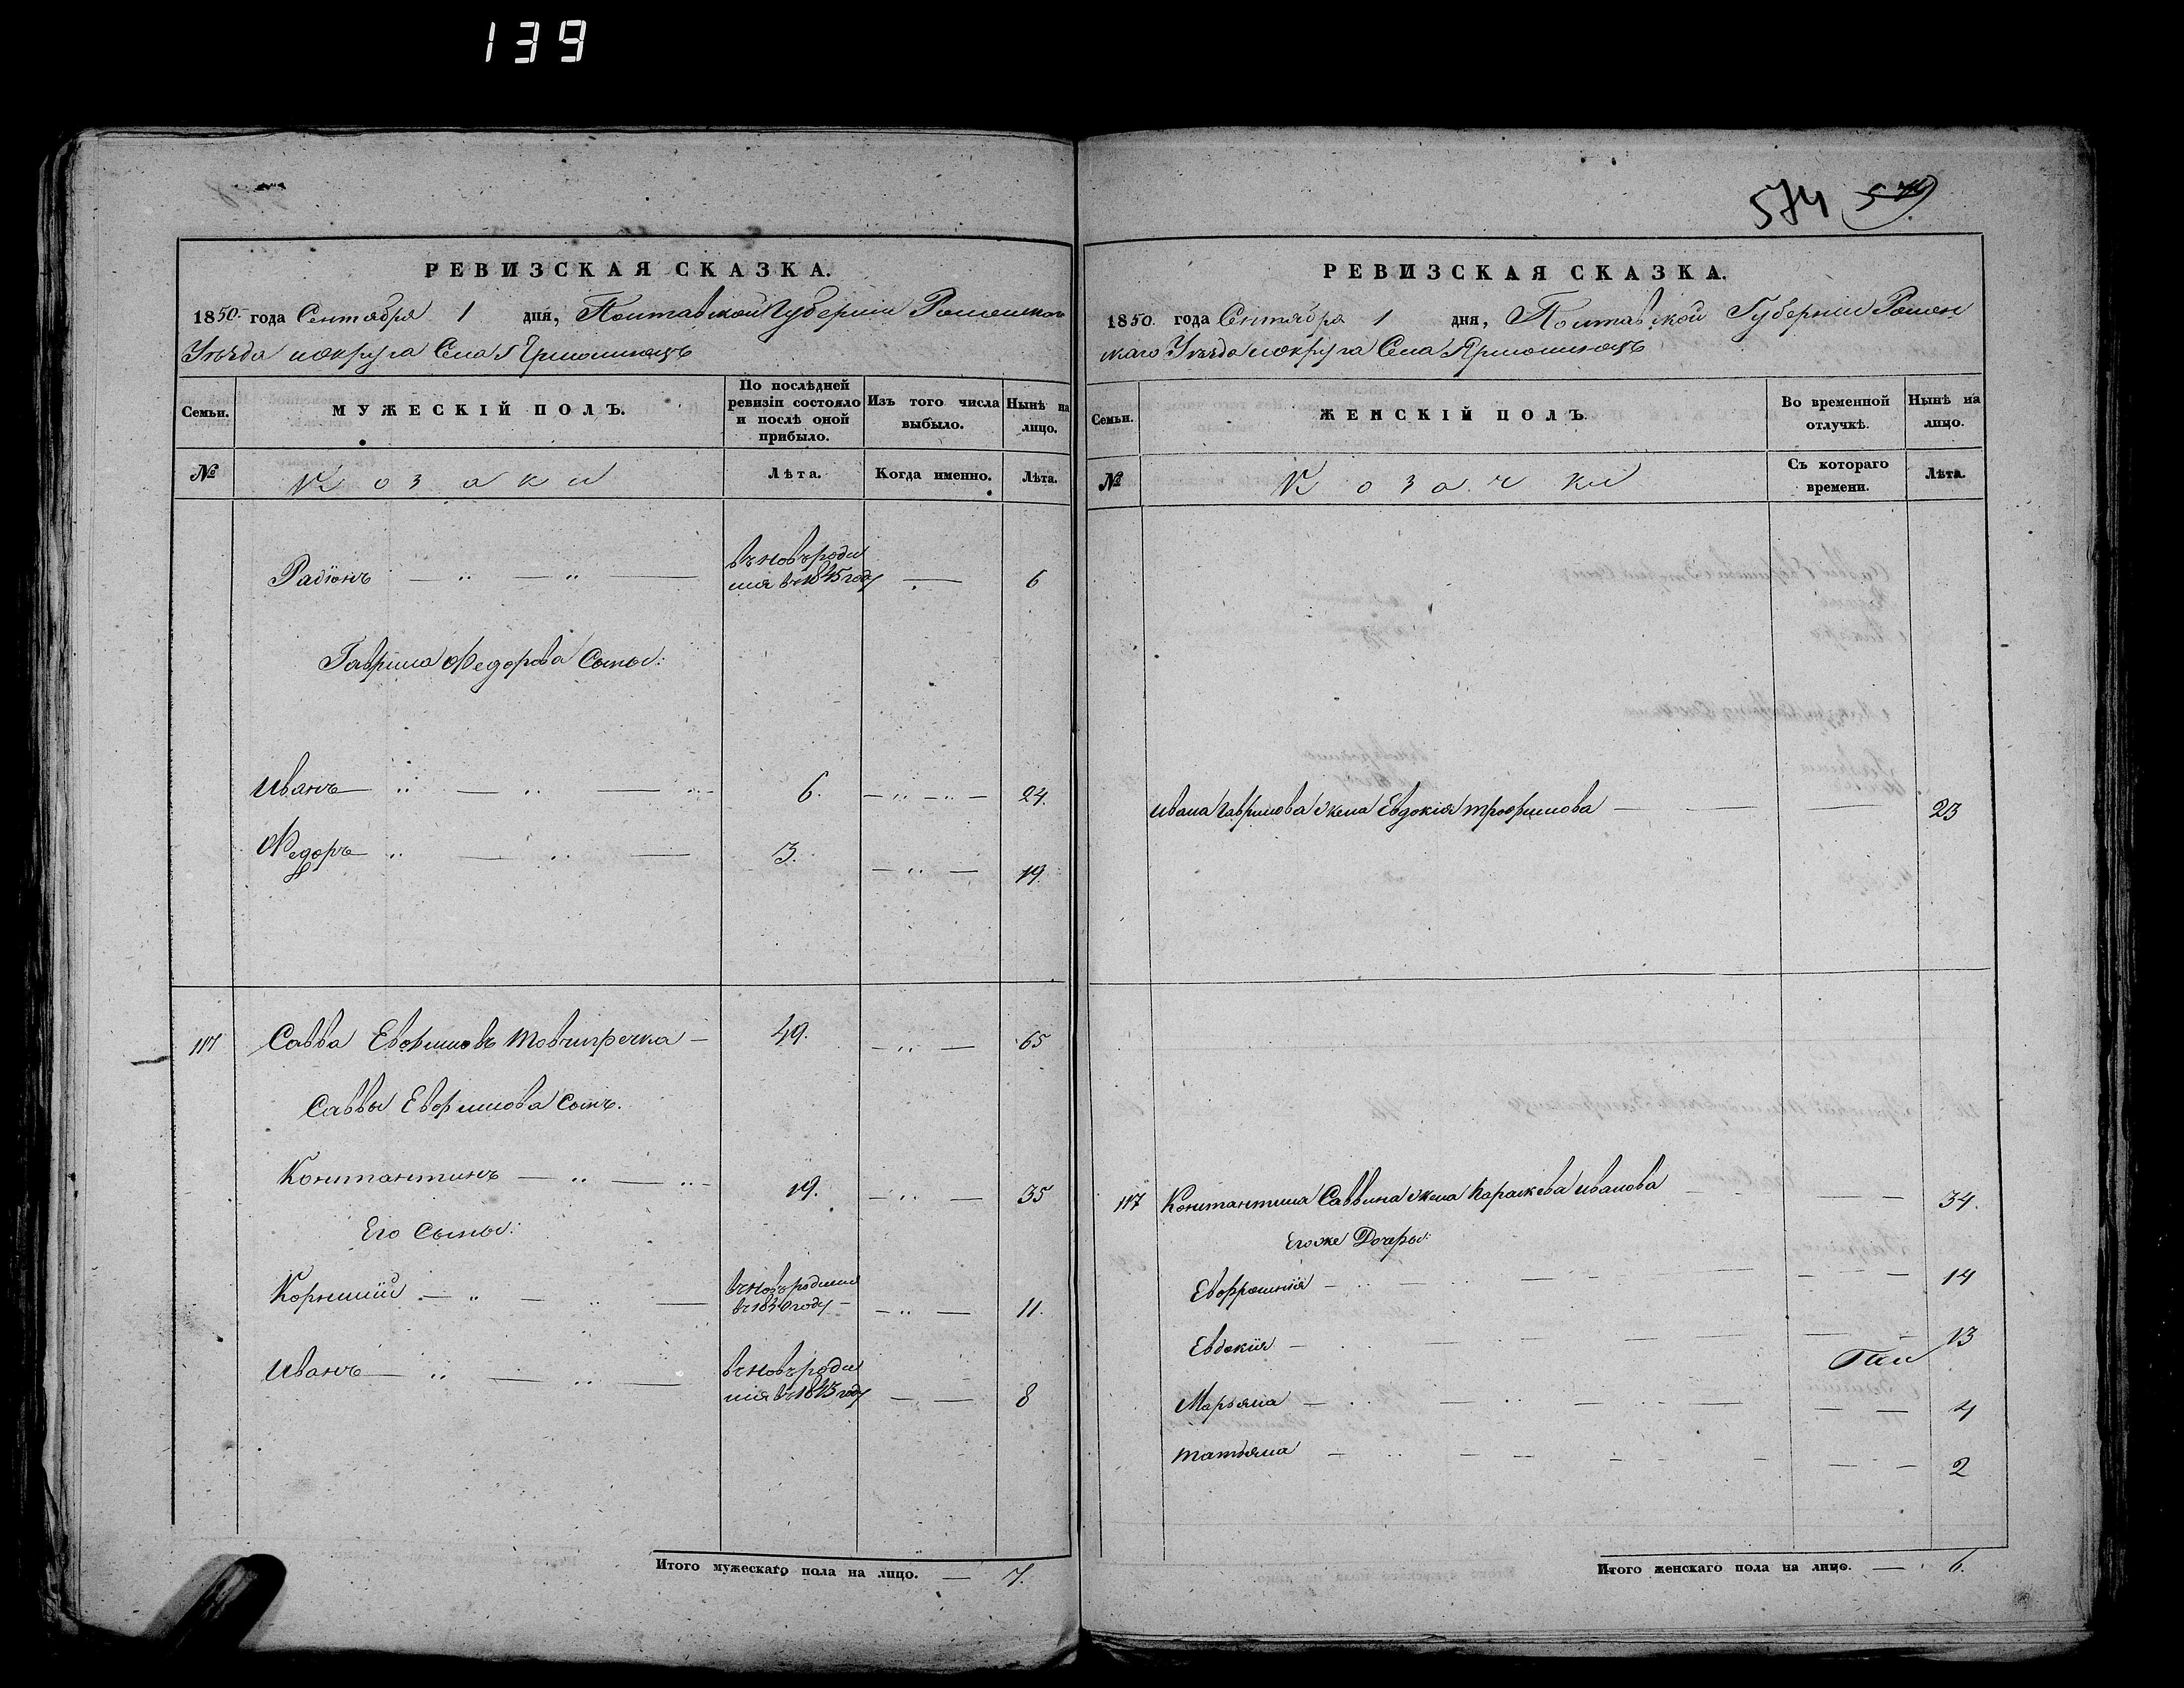 139
574 574
РЕВИЗСКАЯ СКАЗКА.
1850 года Сентября 1 дня, Полтавской Губерніи Роменскаго
Уѣзда и округа Села Ярмолинецъ
Семьи.
МУЖЕСКІЙ ПОЛЪ.
По послѣдней ревизіи состояло и послѣ оной прибыло.
Изъ того числа выбыло.
Нынѣ на лицо.
№ Козаки Лѣта. Когда именно. Лѣта.
Радіонъ — „ — „ — въ новъ роди
шия въ 1845 году — 6
Гаврила Федорова Сыны:
Иванъ — „ — „ — „ — 6. — „ — „ — 24.
Федоръ — „ — „ — 3. — „ — 19.
117 Савва Евфимовъ Товчигречка — 49. — „ — 65
Саввы Евфимова Сынъ.
Константинъ — „ — „ — 19. — „ — 35
Его Сыны:
Корнилий — „ — „ — въ новъ родился
въ 1840 году — — „ — 11.
Иванъ — „ — „ — въ новъ роди
шия въ 1843 году — — 8
Итого мужескаго пола на лицо. — 7.
РЕВИЗСКАЯ СКАЗКА.
1850. года Сентября 1 дня, Полтавской Губерніи Ромен
скаго Уѣзда и округа Села Ярмолинецъ
Семьи.
ЖЕНСКІЙ ПОЛЪ.
Во временной отлучкѣ.
Нынѣ на лицо.
№ Козачки Съ котораго времени. Лѣта.
Ивана Гаврилова жена Евдокія Трофимова — — — 23
117 Константина Саввина жена Параскева Иванова — — 34.
Его же Дочеры:
Евфросинія — 14
Евдокія — 13
Марьяна — 4
Татьяна — 2
Итого женскаго пола на лицо. — 6.